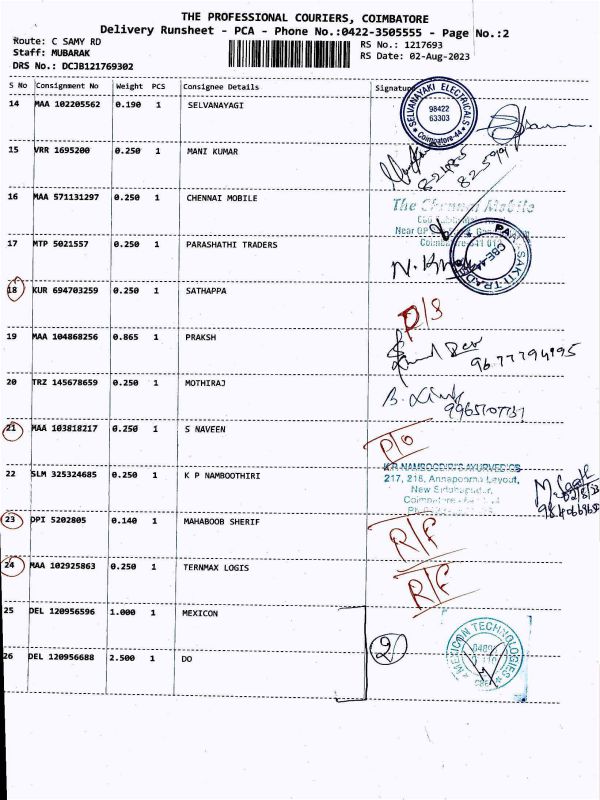 THE PROFESSIONAL COURIERS, COIMBATORE
Delivery Runsheet - PCA - Phone No.:0422-3505555 - Page No.:2
Route: C SAMY RD
RS No.: 1217693
Staff: MUBARAK
RS Date: 02-Aug-2023
DRS No.: DCJB121769302
S No Consignment No Weight PCS Consignee Details Signature
14 MAA 102205562 0.190 1 SELVANAYAGI
SELVANAYAKI ELECTRICALS
98422
63303
Coimbatore-44
15 VRR 1695200 0.250 1 MANI KUMAR
82485
82599
16 MAA 571131297 0.250 1 CHENNAI MOBILE
The Chennai Mobile
Near
17 MTP 5021557 0.250 1 PARASHATHI TRADERS
SAKTI TRAD
CBE-44
18 KUR 694703259 0.250 1 SATHAPPA
D/S
19 MAA 104868256 0.865 1 PRAKSH
9677794995
20 TRZ 145678659 0.250 1 MOTHIRAJ
9965107731
21 MAA 103818217 0.250 1 S NAVEEN
P/O
22 SLM 325324685 0.250 1 K P NAMBOOTHIRI
K.P. NAMBOODIRI'S AYURVEDICS
217, 218, Annapoorna Layout,
New Sidhapudur,
23 DPI 5202805 0.140 1 MAHABOOB SHERIF
R/F
24 MAA 102925863 0.250 1 TERNMAX LOGIS
R/F
25 DEL 120956596 1.000 1 MEXICON
2
MEXICON TECHNOLOGIES
CBE
26 DEL 120956688 2.500 1 DO